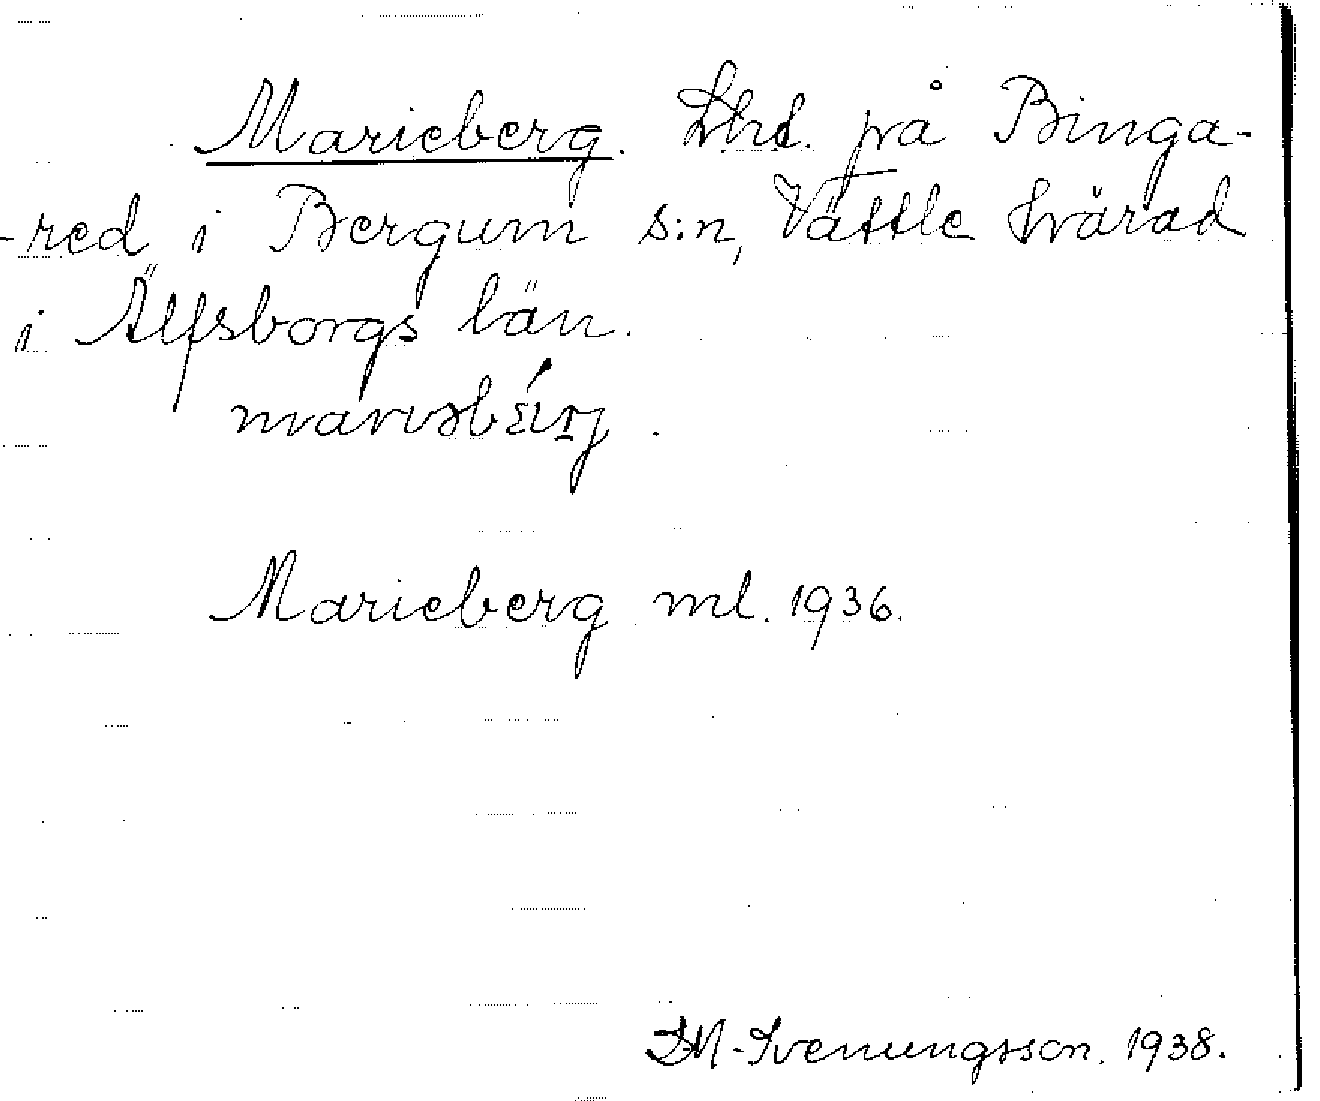 Marieberg. Lhd. på Binga-
-red i Bergum s:n, Vättle härad
i Älfsborgs län.
Marieberg ml. 1936.
Svenungsson. 1938.